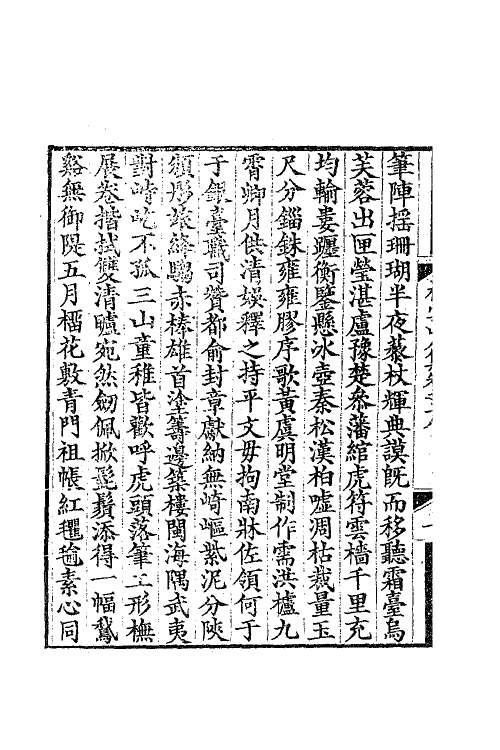 筆陣揺珊瑚半夜藜杖輝典謨旣而移聽霜臺烏
芙蓉出匣瑩湛盧豫楚叅藩綰虎符雲檣千里充
均輸婁躔衡鑒懸冰壺秦松漢柏噓凋枯裁量玉
尺分錙銖雍雍膠序歌黃虞明堂制作需洪爐九
霄卿月供清娯釋之持平文毋拘南牀佐領何于
于銀臺職司贊都俞封章獻納無崎嶇紫泥分陝
頒彤旅絳騶赤棒雄首塗籌邊築樓閩海隅武夷
對峙屹不孤三山童稚皆歡呼虎頭落筆工形橅
展卷揩拭雙清矑宛然劒佩掀髭鬚添得一幅鵞
谿無御隄五月榴花敷青門祖帳紅氍毹素心同